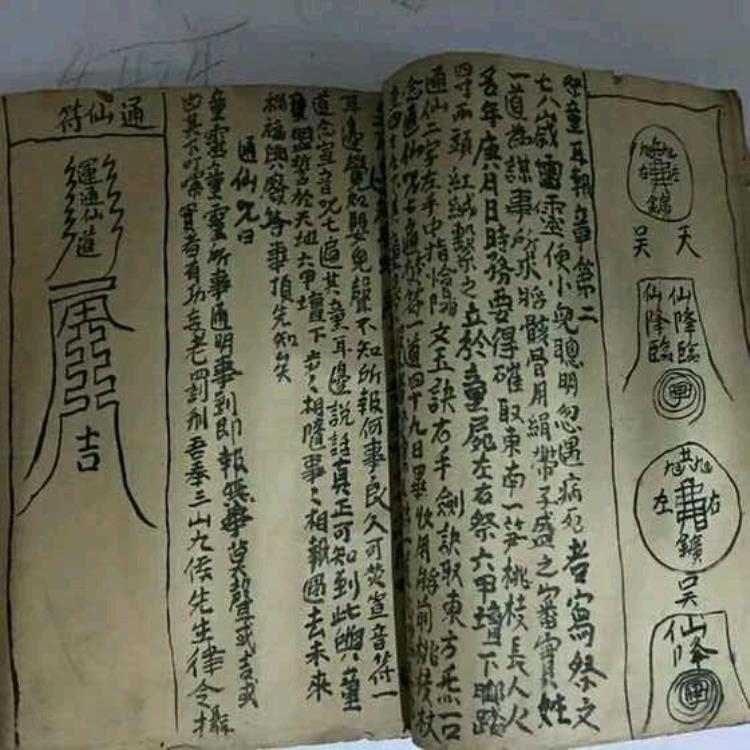 天
吴
仙降臨
仙降臨
左 右
鑛
吴
仙降
童耳報章第二
七八歲靈便小兒聰明忽遇病死者寫祭文
一道為謀事所求將骸骨用絹帶子盛之審實姓
名年庚月日時務要得確取東南一笋桃枝長人人
四寸兩頭紅絨繫之立於童屍左右祭六甲壇下腳踏
通仙二字左手中指掐文玉訣右手劍訣取東方炁一口
念通仙咒七遍焚符一道四十九日畢
耳邊覺如嬰兒聲不知所報何事良久可焚宣音符一
道念宣音咒七遍其童耳邊說話真正可知到此與童
盟誓於天地六甲壇下步步相隨事事相報過去未來
禍福興廢等事預先知矣
通仙咒曰
童靈童靈所事通明事到即報無事莫聲或吉或
凶其下叮嚀實者有功妄老罰刑吾奉三山九侯先生律令攝
通仙符
運通仙道
吉